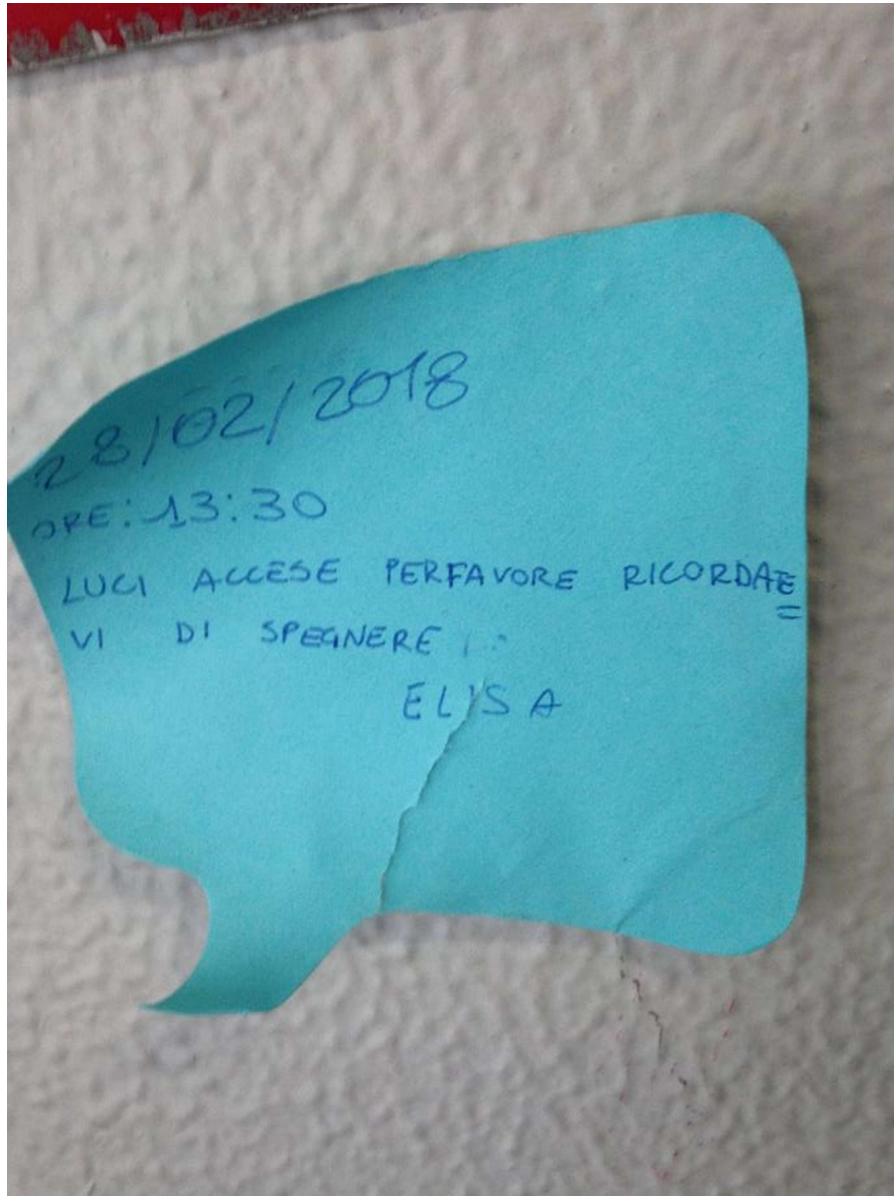 28/02/2018
ORE: 13:30
LUCI ACCESE PERFAVORE RICORDAE=
VI DI SPEGNERE
ELISA